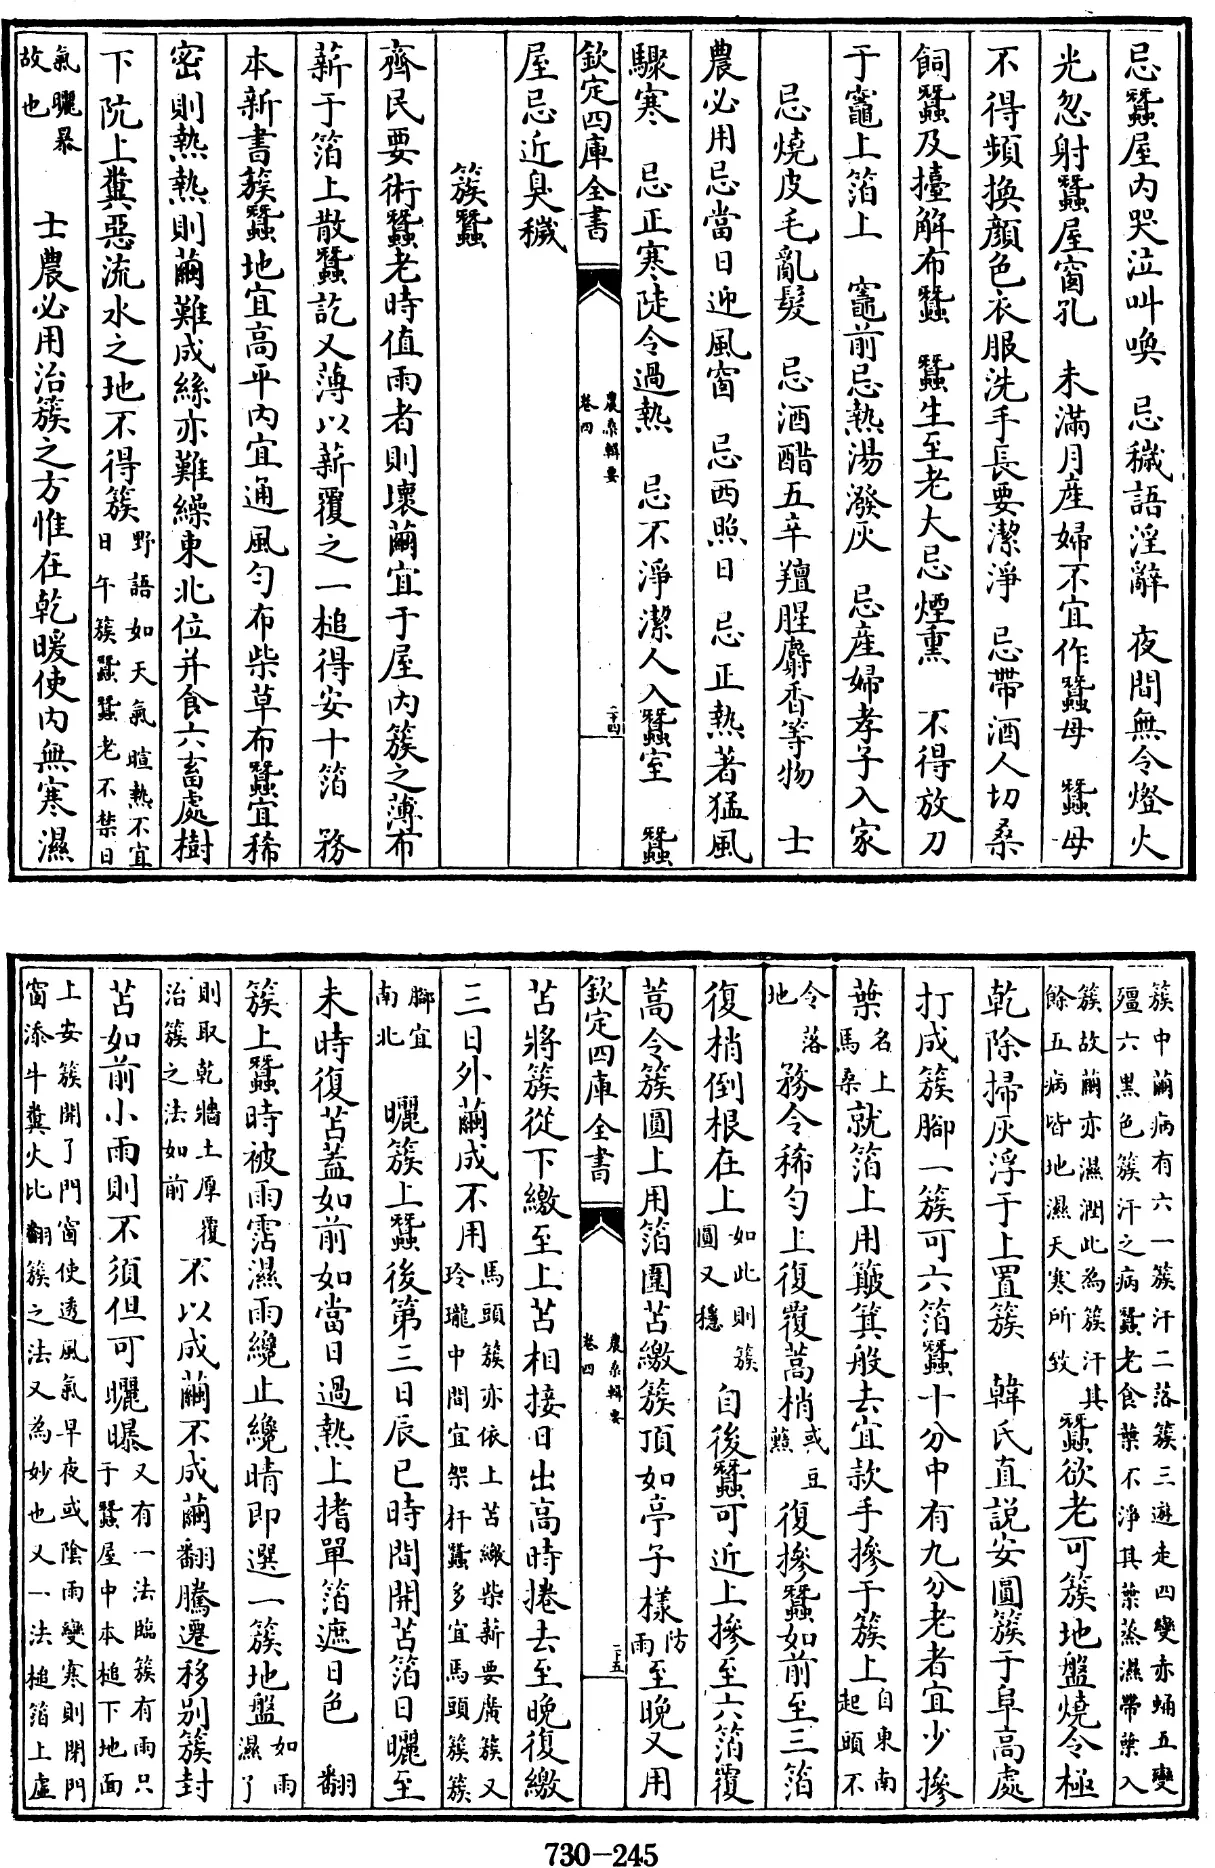 忌蠶屋内哭泣叫喚　忌穢語淫辭　夜間無令燈火
光忽射蠶屋窗孔　未滿月産婦不宜作蠶母　蠶母
不得頻換顔色衣服洗手長要潔淨　忌帶酒人切桑
飼蠶及擡解布蠶　蠶生至老大忌煙熏　不得放刀
于竈上箔上　竈前忌熱湯潑灰　忌産婦孝子入家
忌燒皮毛亂髮　忌酒醋五辛羶腥麝香等物　士
農必用忌當日迎風窗　忌西照日　忌正熱著猛風
驟寒　忌正寒陡令過熱　忌不淨潔人入蠶室　蠶
欽定四庫全書　農桑輯要　卷四　二十四
屋忌近臭穢
簇蠶
齊民要術蠶老時值雨者則壞繭宜于屋内簇之薄布
薪于箔上散蠶訖又薄以薪覆之一槌得安十箔　務
本新書簇蠶地宜高平内宜通風匀布柴草布蠶宜稀
密則熱熱則繭難成絲亦難繰東北位并食六畜處樹
下阬上糞惡流水之地不得簇野語如天氣暄熱不宜日午簇蠶蠶老不禁日
氣曬暴故也　士農必用治簇之方惟在乾暖使内無寒濕
簇中繭病有六一簇汗二落簇三遊走四變赤蛹五變殭六黑色簇汗之病蠶老食葉不淨其葉蒸濕帶葉入
簇故繭亦濕潤此為簇汗其餘五病皆地濕天寒所致蠶欲老可簇地盤燒令極
乾除掃灰浮于上置簇　韓氏直説安圓簇于阜高處
打成簇腳一簇可六箔蠶十分中有九分老者宜少摻
葉名上馬桑就箔上用簸箕般去宜款手摻于簇上自東南起頭不
令落地務令稀匀上復覆蒿梢或豆䕸復摻蠶如前至三箔
復梢倒根在上如此則簇圓又穩自後蠶可近上摻至六箔覆
蒿令簇圓上用箔圍苫繳簇頂如亭子樣防雨至晚又用
欽定四庫全書　農桑輯要　卷四　二十五
苫將簇從下繳至上苫相接日出高時捲去至晚復繳
三日外繭成不用馬頭簇亦依上苫繳柴薪要廣簇又玲瓏中間宜架杆蠶多宜馬頭簇簇
腳宜南北　曬簇上蠶後第三日辰巳時間開苫箔日曬至
未時復苫蓋如前如當日過熱上撦單箔遮日色　翻
簇上蠶時被雨霑濕雨纔止纔晴即選一簇地盤如雨濕了
則取乾牆土厚覆治簇之法如前不以成繭不成繭翻騰遷移别簇封
苫如前小雨則不須但可曬曝又有一法臨簇有雨只于蠶屋中本槌下地面
上安簇開了門窗使透風氣早夜或陰雨變寒則閉門窗添牛糞火比翻簇之法又為妙也又一法槌箔上虚
730-245